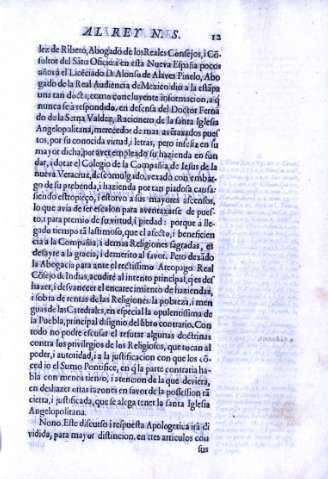 AL REY N. S. 12
lez de Ribero, Abogado de los Reales Consejos, i Cõ
sultor del Sãto Oficio; i en esta Nueva España pocos
años à el Licẽciado D. Alonso de Alaves Pinelo, Abo
gado de la Real Audiencia de Mexico diò a la estãpa
una tan docta, como concluyente informacion, a q̃
nunca se à respondida, en defensa del Doctor Ferna
do de la Serna Valdez, Racionero de la santa Iglesia
Angelopolitana, merecedor de mas aventajados pues
tos, por su conocida virtud, i letras, pero infelix en su
mayor dicha, por aver empleado su hazienda en fun
dar, i dotar el Colegio de la Compañia de Jesus de la
nueva Veracruz, descomulgado, vexado con embar
go de su prebenda, i hazienda por tan piadosa causa,
siendo estropieço, i estorvo a sus mayores ascensos,
lo que avia de ser escalon para aventaxarse de pues-
to: para premio de su virtud, i piedad: porque à lle-
gado tiempo tã lastimoso, que el afecto, i beneficen
cia a la Compañia, i demas Religiones sagradas, es
desayre a la gracia, i demerito al favor. Pero dexãdo
la Abogacia para ante el rectissimo Areopago Real
Cõsejo de Indias, acudirè al intento principal, q̃ es des
hazer, i desvanecer el encarecimiento de haziendas,
i sobra de rentas de las Religiones, la pobreza, i men
guas de las Catedrales, en especial la opulentissima de
la Puebla, principal disignio del libro contrario. Con
todo no podre escusar el refutar algunas doctrinas
contra los privilegios de los Religiosos, que tocan al
poder, i autoridad, i a la justificacion con que los cõ-
cediò el Sumo Pontifice, en q̃ la parte contraria ha-
bla con menos tiento, i atencion de la que deviera,
en deshazer otras razones en favor de la possession tã
cierta, i justificada, que se alega tener la santa Iglesia
Angelopolitana.
Nono. Este discurso i respuesta Apologetica irà di
vidida, para mayor distincion, en tres articulos con
sus